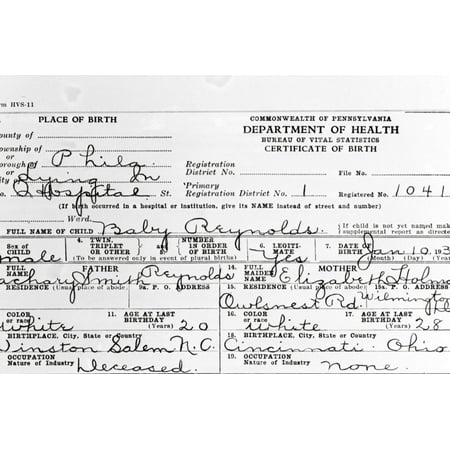 rm HVS-11
PLACE OF BIRTH
COMMONWEALTH OF PENNSYLVANIA
DEPARTMENT OF HEALTH
BUREAU OF VITAL STATISTICS
CERTIFICATE OF BIRTH
ounty of
ownship of
or
orough of Phila.
or
Lying In
Hospital St.
Registration
District No. File No.
Primary
Registration District No. 1 Registered No. 1041
(If birth occurred in a hospital or institution, give its NAME instead of street and number)
Ward.
FULL NAME OF CHILD Baby Reynolds.
If child is not yet named
supplemental report as direct
Sex of
CHILD male
4. TWIN, TRIPLET OR OTHER
5. NUMBER IN ORDER OF BIRTH
(To be answered only in event of plural births)
6. LEGITI-
MATE Yes
7. DATE OF
BIRTH Jan 10 193
(Month) (Day) (Yea
FATHER
FULL
NAME achary Smith Reynolds
14. MOTHER
FULL
MAIDEN
NAME Elizabeth Holm
RESIDENCE (Usual place of abode) 9a. P. O. ADDRESS
15. RESIDENCE (Usual place of abode) 15a. P. O. ADDRESS
Owlsnest Rd. Wilmington
COLOR
or race White
11. AGE AT LAST
BIRTHDAY (Years) 20
16. COLOR
or race White
17. AGE AT LAST
BIRTHDAY (Years) 28
BIRTHPLACE, City, State or Country
inston Salem N.C.
18. BIRTHPLACE, City, State or Country
Cincinnati Ohio
OCCUPATION
Nature of Industry Deceased.
19. OCCUPATION
Nature of Industry none.